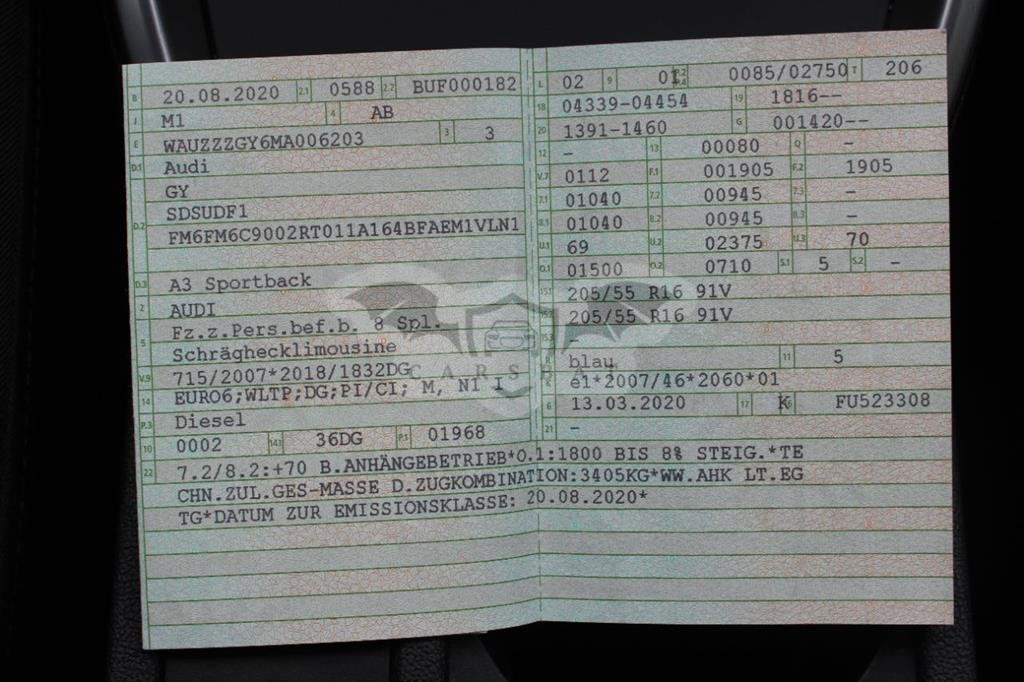 B 20.08.2020 2.1 0588 2.2 BUF000182
J M1 4 AB
E WAUZZZGY6MA006203 3 3
D.1 Audi
GY
D.2 SDSUDF1
FM6FM6C9002RT011A164BFAEM1VLN1
D.3 A3 Sportback
2 AUDI
5 Fz.z.Pers.bef.b. 8 Spl.
Schräghecklimousine
V.9 715/2007*2018/1832DG
14 EURO6;WLTP;DG;PI/CI; M, N1 I
P.3 Diesel
10 0002 14.1 36DG P.1 01968
L 02 9 01 P.2 P.4 0085/02750 T 206
18 04339-04454 19 1816--
20 1391-1460 G 001420--
12 - 13 00080 Q -
V.7 0112 F.1 001905 F.2 1905
7.1 01040 7.2 00945 7.3 -
8.1 01040 8.2 00945 8.3 -
U.1 69 U.2 02375 U.3 70
O.1 01500 O.2 0710 S.1 5 S.2 -
15.1 205/55 R16 91V
205/55 R16 91V
R blau 11 5
K e1*2007/46*2060*01
6 13.03.2020 17 K 16 FU523308
21 -
22 7.2/8.2:+70 B.ANHÄNGEBETRIEB*O.1:1800 BIS 8% STEIG.*TE
CHN.ZUL.GES-MASSE D.ZUGKOMBINATION:3405KG*WW.AHK LT.EG
TG*DATUM ZUR EMISSIONSKLASSE: 20.08.2020*